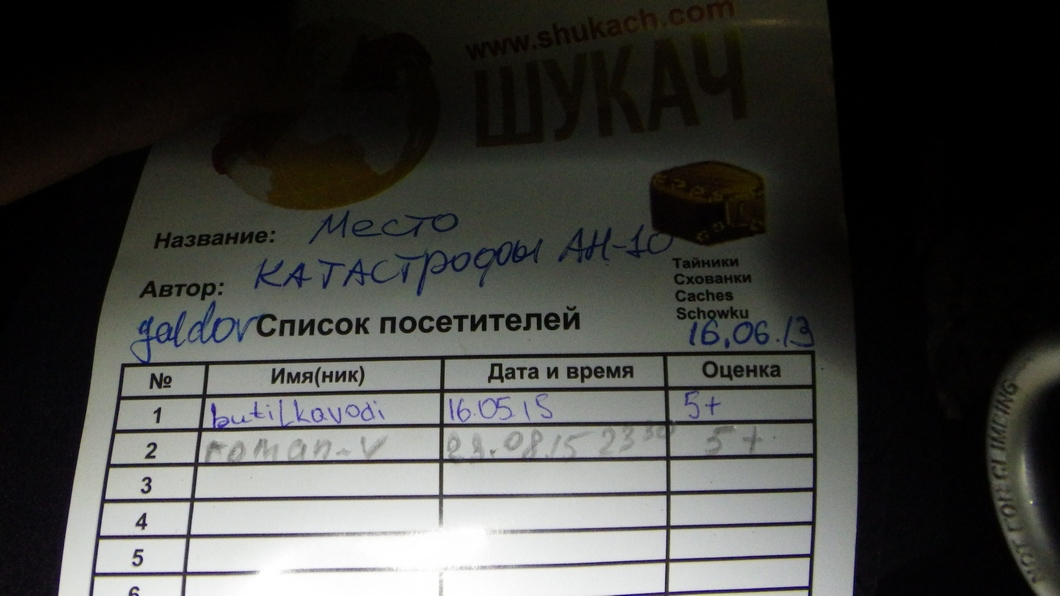 www.shukach.com
ШУКАЧ
Название: Место
Катастрофы АН-10
Автор:
galdor
Тайники
Схованки
Caches
Schowku
16.06.13
Список посетителей
№ Имя(ник) Дата и время Оценка
1 butilkavodi 16.05.15 5+
2 roman-v 23.08.15 23 30 5+
3
4
5
6
NOT FOR CLIMBING